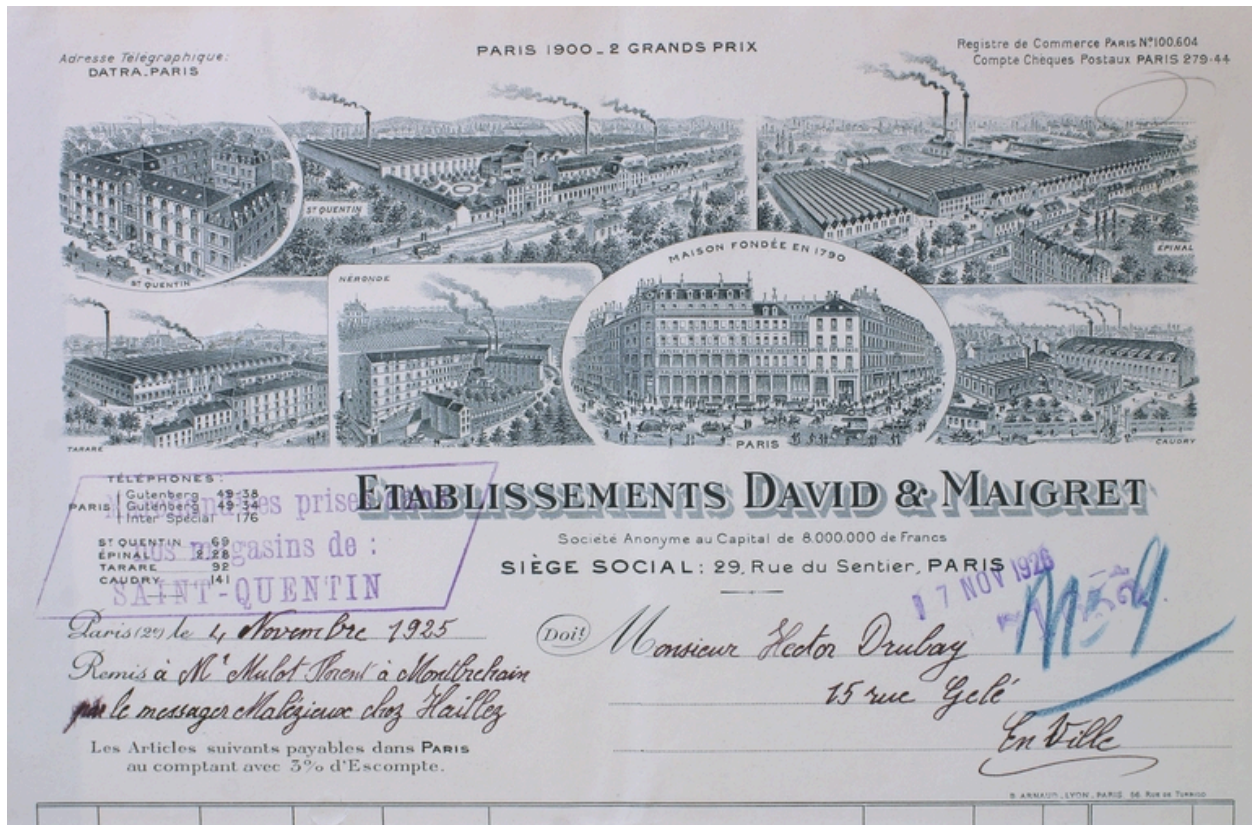 Adresse Télégraphique:
DATRA-PARIS
PARIS 1900-2 GRANDS PRIX
Registre de Commerce PARIS Nº100.604
Compte Chèques Postaux PARIS 279-44
ST QUENTIN
ST QUENTIN
ÉPINAL
TARARE
NÉRONDE
MAISON FONDÉE EN 1790
PARIS
CAUDRY
TÉLÉPHONES:
PARIS Gutenberg 49-38
Gutenberg 49-34
Inter Spécial 176
ST QUENTIN 69
ÉPINAL 2.28
TARARE 92
CAUDRY 141
prises dans
nos magasins de :
SAINT-QUENTIN
ETABLISSEMENTS DAVID & MAIGRET
Société Anonyme au Capital de 8.000.000 de Francs
SIÈGE SOCIAL: 29, Rue du Sentier, PARIS
17 NOV 1926
Paris (2e) le 4 Novembre 1925
Remis à Mr Mulot Florent à Montbrehain
par le messager Malézieux chez Haillez
Doit Monsieur Hector Drubay
15 rue Gelé
En Ville
Les Articles suivants payables dans PARIS
au comptant avec 3% d'Escompte.
B. ARNAUD, LYON, PARIS. 66, RUE DE TURBIGO